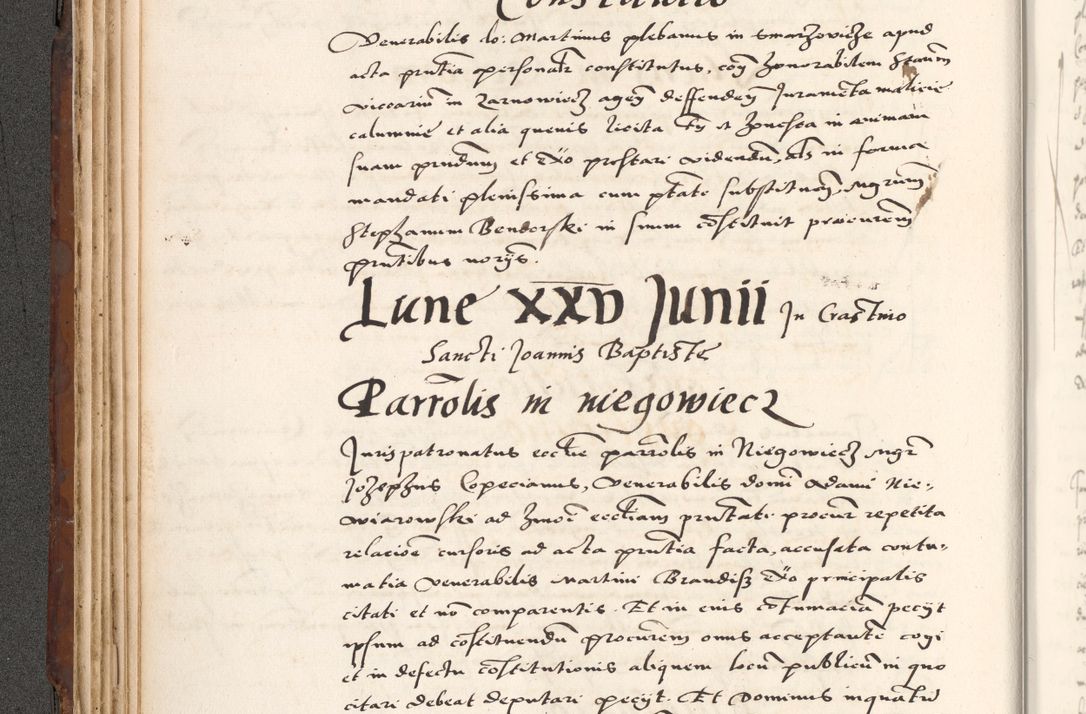 Constitutio
Venerabilis do: Martinus plebanus in Smarzovicze apud
acta pñtia personałr constitutus, coñ honorabilem Stañm
viccariũ in Zarnowiecz ageñ deffendeñ Juramẽta malicie
calumnie et alia quevis licita et honesta in animam
suam prestari videndũ, in forma
mandati plenissima cum ptãte substituẽ mgrum
Stephanum Benderski in suum cõstituit procurem̃
pñtibus noryis.
Lune xxv Junii In Crastino
Sancti Joannis Baptiste
Parrõlis in niegowiecz
Jurispatronatus eccłie parrõlis in Niegowiecz mgr̃
Jozephus Copecianus, Venerabilis domĩ Adami Nie-
wiarowski ad hmõi eccłiam pñtati procur̃ repetita
relacioẽ cursoris ad acta pñtia facta, accusata contu-
matia Venerabilis Martini Brandisz principalis
citati et nõ comparentis. Et in eius cõtumaciã peciit
ipsum ad cõstituendũ procurem̃ onus acceptantẽ cogi
et in defectu cõstitutionis aliquem locũ publicũ in quo
citari debeat deputari peciit. Et Dominus inquañtũ